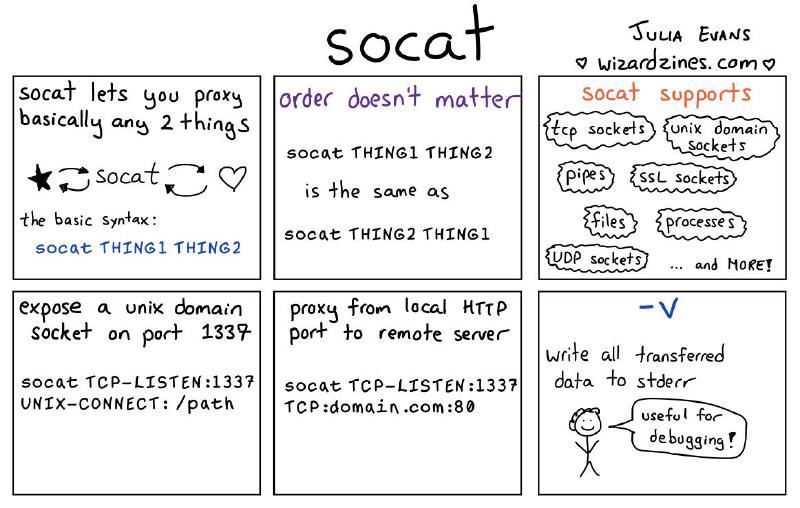 socat
JULIA EVANS
♡ wizardzines.com ♡
socat lets you proxy
basically any 2 things
socat
the basic syntax:
socat THING1 THING2
order doesn't matter
socat THING1 THING2
is the same as
socat THING2 THING1
socat supports
tcp sockets
unix domain
sockets
pipes
SSL sockets
files
processes
UDP sockets
... and MORE!
expose a unix domain
socket on port 1337
socat TCP-LISTEN:1337
UNIX-CONNECT: /path
proxy from local HTTP
port to remote server
socat TCP-LISTEN:1337
TCP:domain.com:80
-v
write all transferred
data to stderr
useful for
debugging!